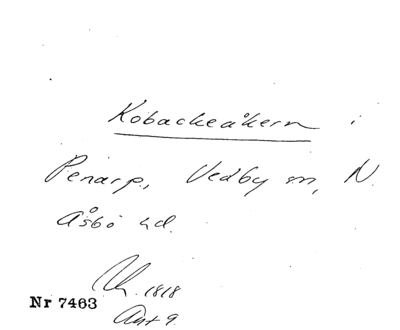 Kobackeåkern i
Penarp, Vedby sn, N.
Åsbo hd.
1818
Nr 7463
Akt 9.